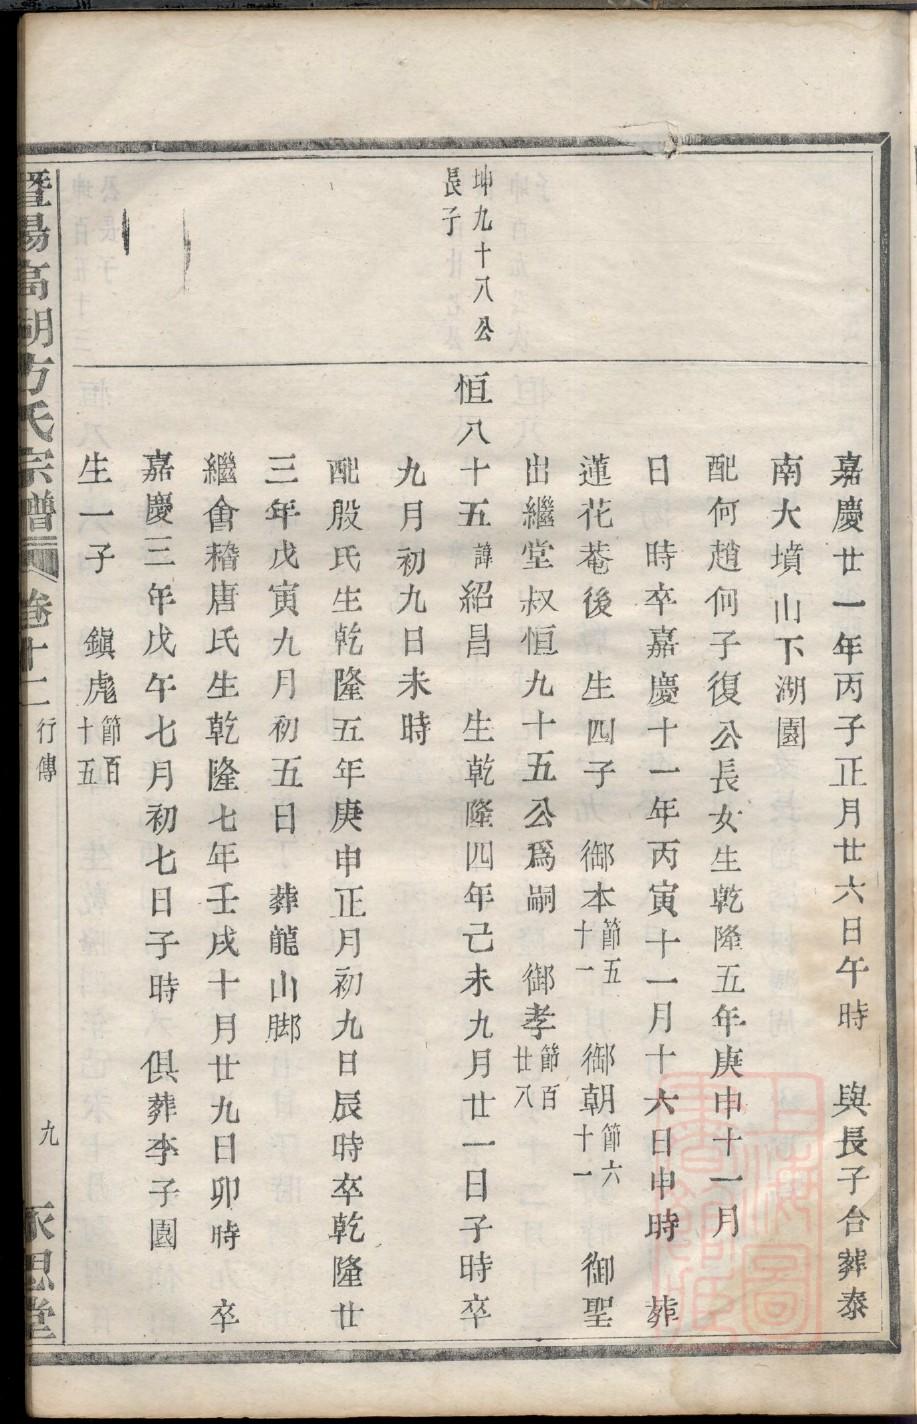 嘉慶廿一年丙子正月廿六日午時　與長子台葬泰
南大墳山下湖園
配何趙何子復公長女生乾隆五年庚申十一月
日　時卒嘉慶十一年丙寅十一月十六日申時　葬
蓮花菴後　生四子　御本節五十一　御朝節六十一　御聖
出繼堂叔恒九十五公爲嗣　御孝節百廿八
坤九十八公長子
恒八十五諱紹昌　生乾隆四年己未九月廿一日子時卒
九月初九日未時
配殷氏生乾隆五年庚申正月初九日辰時卒乾隆廿
三年戊寅九月初五日　葬龍山脚
繼會稽唐氏生乾隆七年壬戌十月廿九日卯時　卒
嘉慶三年戊午七月初七日子時　俱葬李子園
生一子　鎮彪節百十五
暨陽高湖方氏宗譜　卷十二　行傳　九　永思堂